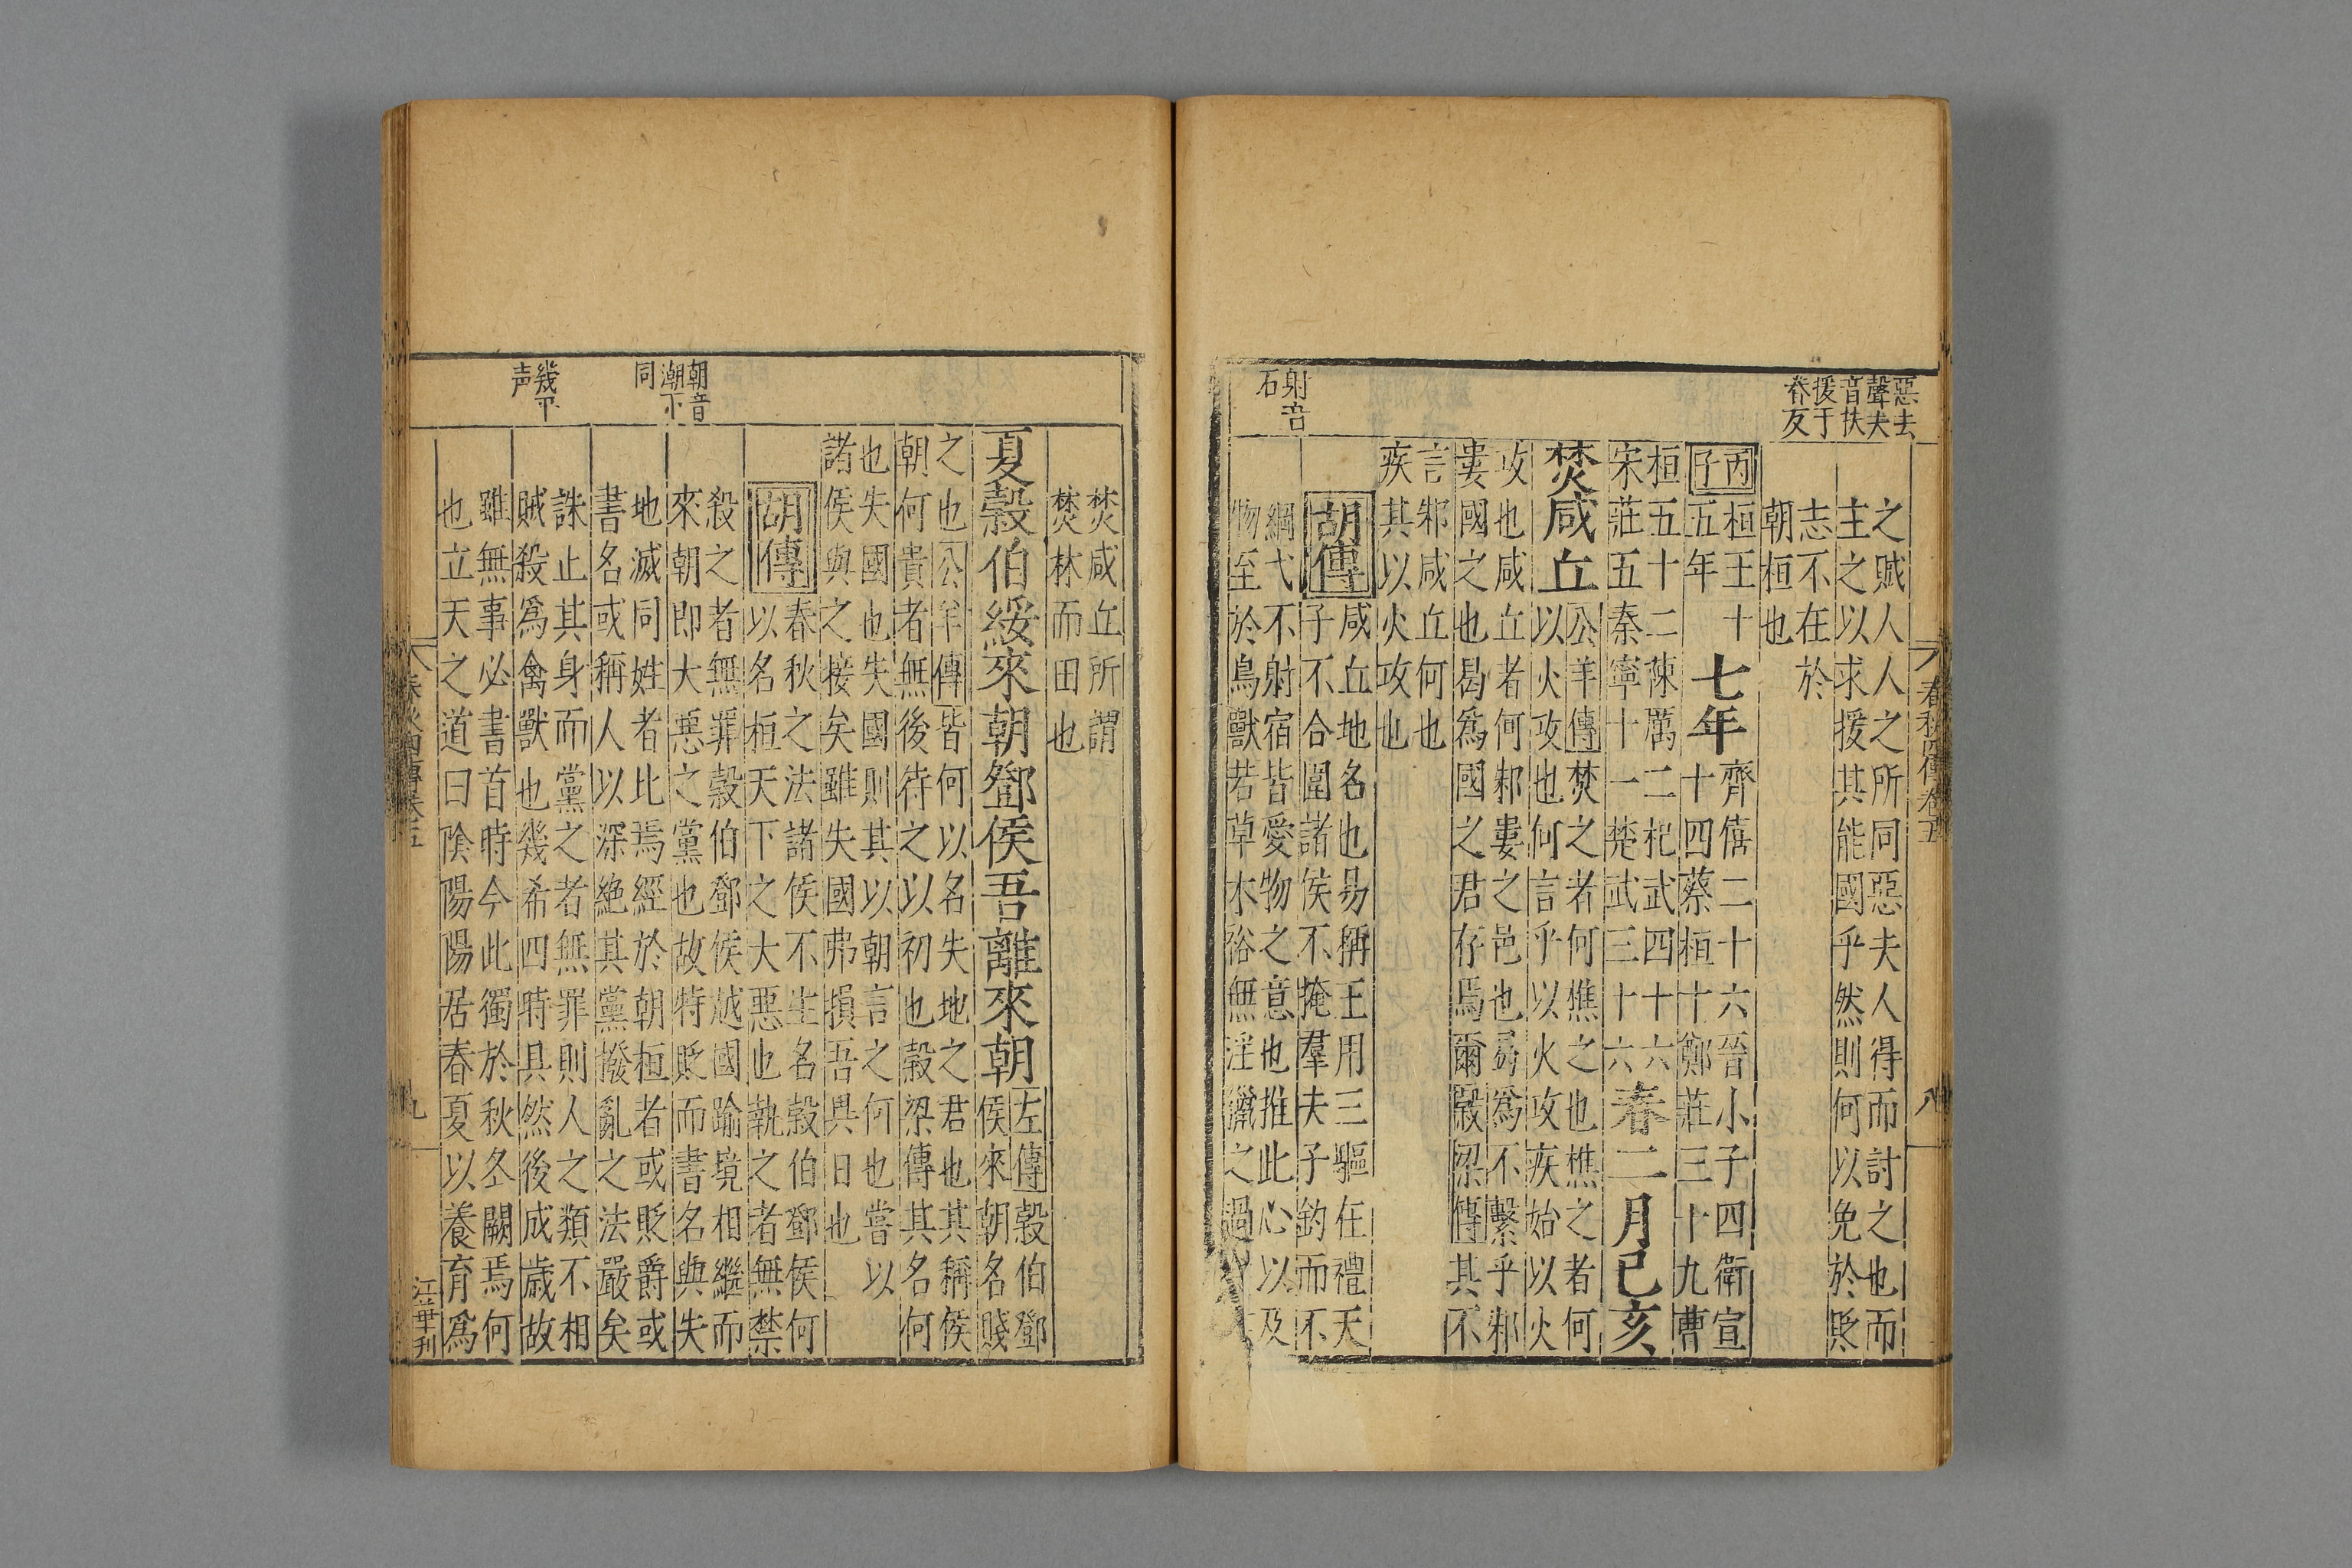 惡去
聲夫
音扶
援于
眷反
之賊人人之所同惡夫人得而討之也而
主之以求援其能國乎然則何以免於貶
志不在於
朝桓也
丙子
桓王十
五年
七年
齊僖二十六晉小子四衛宣
十四蔡桓十鄭莊三十九曹
桓五十二陳厲二杞武四十六
宋莊五秦寧十一楚武三十六
春二月己亥
焚咸丘
公羊傳焚之者何樵之也樵之者何
以火攻也何言乎以火攻疾始以火
攻也咸丘者何邾婁之邑也曷為不繫乎邾
婁國之也曷為國之君存焉爾穀梁傳其不
言邾咸丘何也
疾其以火攻也
胡傳
咸丘地名也易稱王用三驅在禮天
子不合圍諸侯不掩羣夫子釣而不
綱弋不射宿皆愛物之意也推此心以及
物至於鳥獸若草木裕無淫獵之過
射音
石
春秋四傳卷五
八
焚咸丘所謂
焚林而田也
夏穀伯綏來朝鄧侯吾離來朝
左傳穀伯鄧
侯來朝名賤
之也公羊傳皆何以名失地之君也其稱侯
朝何貴者無後待之以初也穀梁傳其名何
也失國也失國則其以朝言之何也嘗以
諸侯與之接矣雖失國弗損吾異日也
胡傳
春秋之法諸侯不生名穀伯鄧侯何
以名桓天下之大惡也執之者無禁
殺之者無罪穀伯鄧侯越國踰境相繼而
來朝即大惡之黨也故特貶而書名與失
地滅同姓者比焉經於朝桓者或貶爵或
書名或稱人以深絶其黨撥亂之法嚴矣
誅止其身而黨之者無罪則人之類不相
賊殺為禽獸也幾希四時具然後成歲故
雖無事必書首時今此獨於秋冬闕焉何
也立天之道曰陰陽陽居春夏以養育為
朝音
潮下
同
幾平
声
春秋四傳卷五
九
江華刋